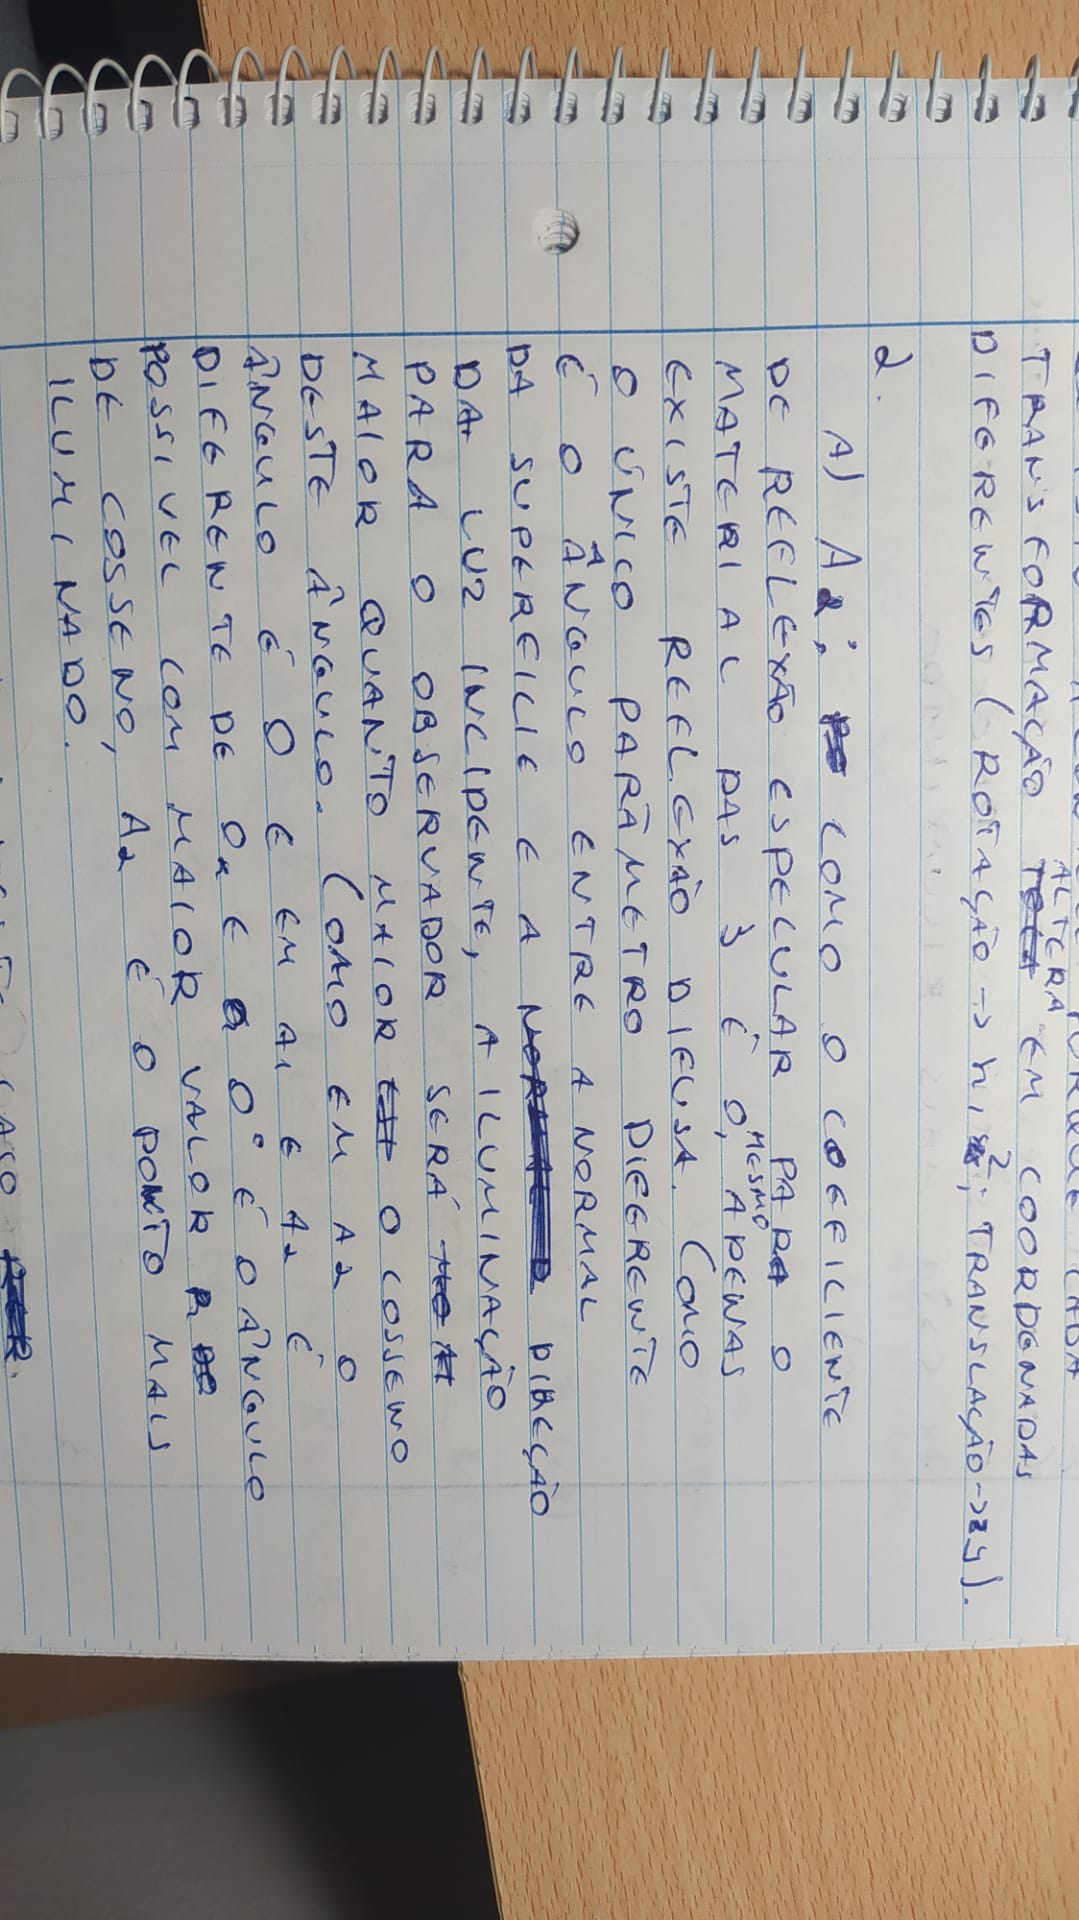 PORQUE CADA
ALTERA
TRANSFORMAÇÃO EM COORDENADAS
DIFERENTES (ROTAÇÃO -> x, z; TRANSLAÇÃO -> y).
2.
A) A2: COMO O COEFICIENTE
DE REFLEXÃO ESPECULAR PARA O
MESMO
MATERIAL DAS 3 É 0, APENAS
EXISTE REFLEXÃO DIFUSA. COMO
O ÚNICO PARÂMETRO DIFERENTE
É O ÂNGULO ENTRE A NORMAL
DA SUPERFICIE E A DIREÇÃO
DA LUZ INCIDENTE, A ILUMINAÇÃO
PARA O OBSERVADOR SERÁ
MAIOR QUANTO MAIOR O COSSENO
DESTE ÂNGULO. COMO EM A2 O
ÂNGULO É 0 E EM A1 E A2 É
DIFERENTE DE 0 E 0° É O ÂNGULO
POSSIVEL COM MAIOR VALOR
DE COSSENO, A2 É O PONTO MAIS
ILUMINADO.
CASO